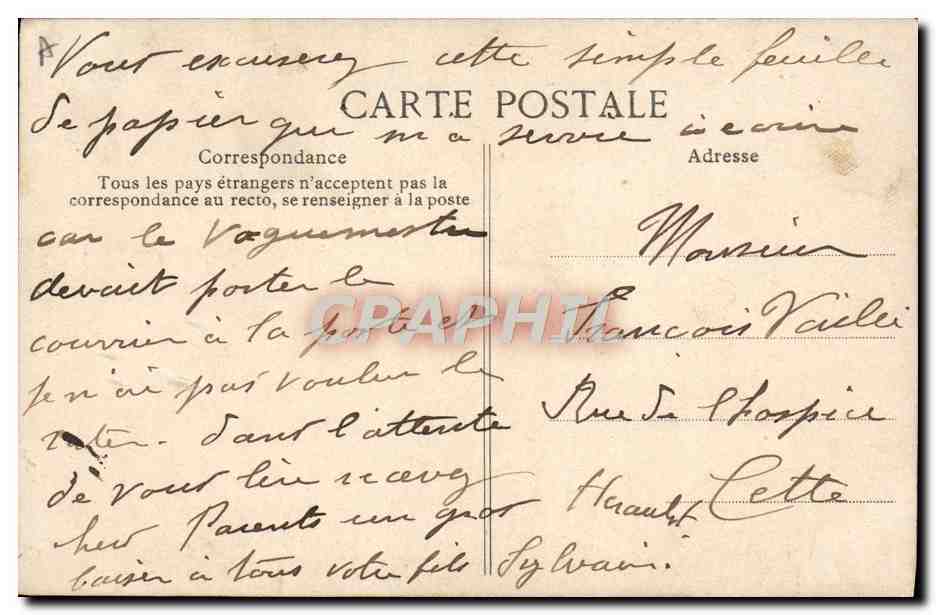 A
Vous excuserez cette simple feuille
CARTE POSTALE
de papier qui m a servie à ecrire
Correspondance
Tous les pays étrangers n'acceptent pas la
correspondance au recto, se renseigner à la poste
car le Vaguemestre
devait porter le
courrier à la poste et
je n'ai pas voulu le
rater. dans l'attente
de vous lire recevez
cher Parents un gros
baiser à tous votre fils Sylvain.
Adresse
Monsieur
François
Rue de l hospice
Cette
Herault
CRAPHIL